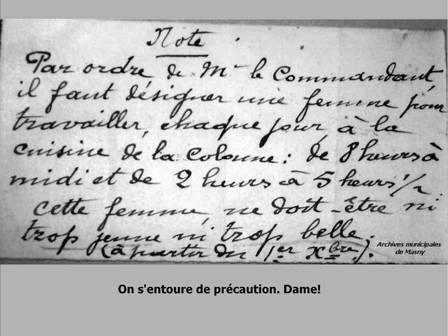 Note
Par ordre de Mr le Commandant
il faut désigner une femme pour
travailler, chaque jour à la
cuisine de la Colonne : de 8 heurs à
midi et de 2 heurs à 5 heurs 1/2
cette femme, ne doit-être ni
trop jeune ni trop belle.
(à partir du 1er Xbre).
Archives municipales
de Masny
On s'entoure de précaution. Dame!